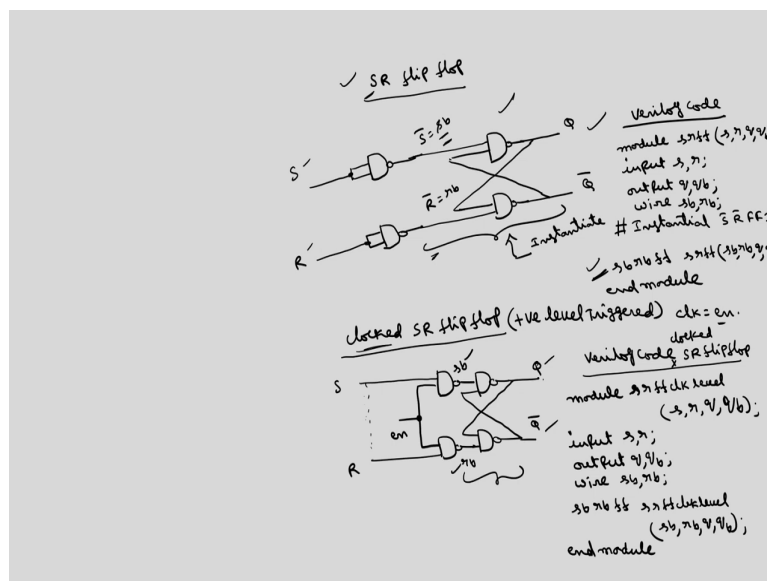 ✓ SR flip flop
S̄ = sb
Q ✓
S
R̄ = rb
Q̄
R
Instantiate
verilog code
module srff (s,r,q,qb
input s,r;
output q,qb;
wire sb,rb;
# Instantial S̄ R̄ FF:
✓ sbrbff srff(sb,rb,q,
endmodule
clocked SR flipflop (+ve level Triggered) clk = en.
S
sb
Q
en
Q̄
R
✓ rb
clocked
verilog code SR flipflop
module srffclklevel
(s,r,q,qb);
input s,r;
output q,qb;
wire sb,rb;
sbrbff srffclklevel
(sb,rb,q,qb);
endmodule